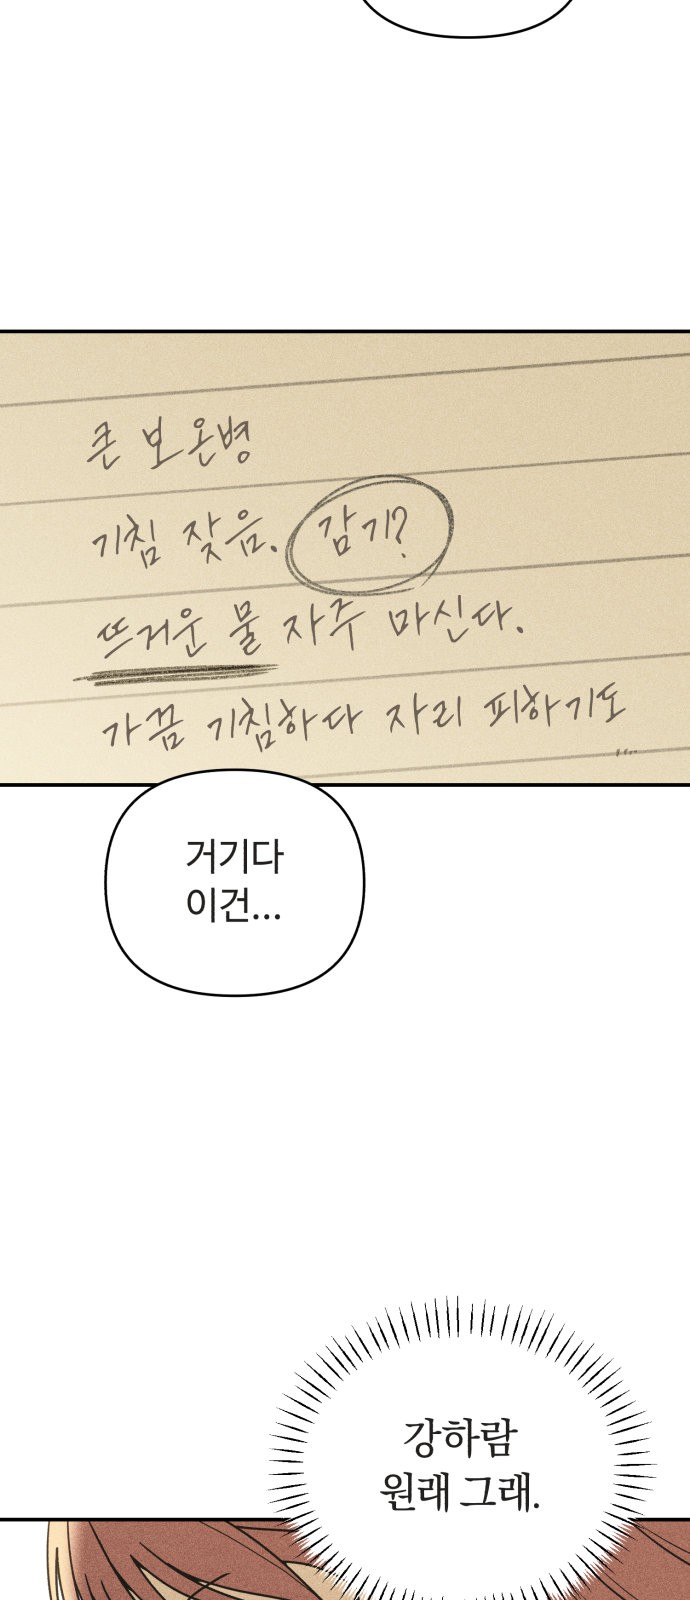 큰 보온병
기침 잦음. 감기?
뜨거운 물 자주 마신다.
가끔 기침하다 자리 피하기도
....
거기다
이건...
강하람
원래 그래.